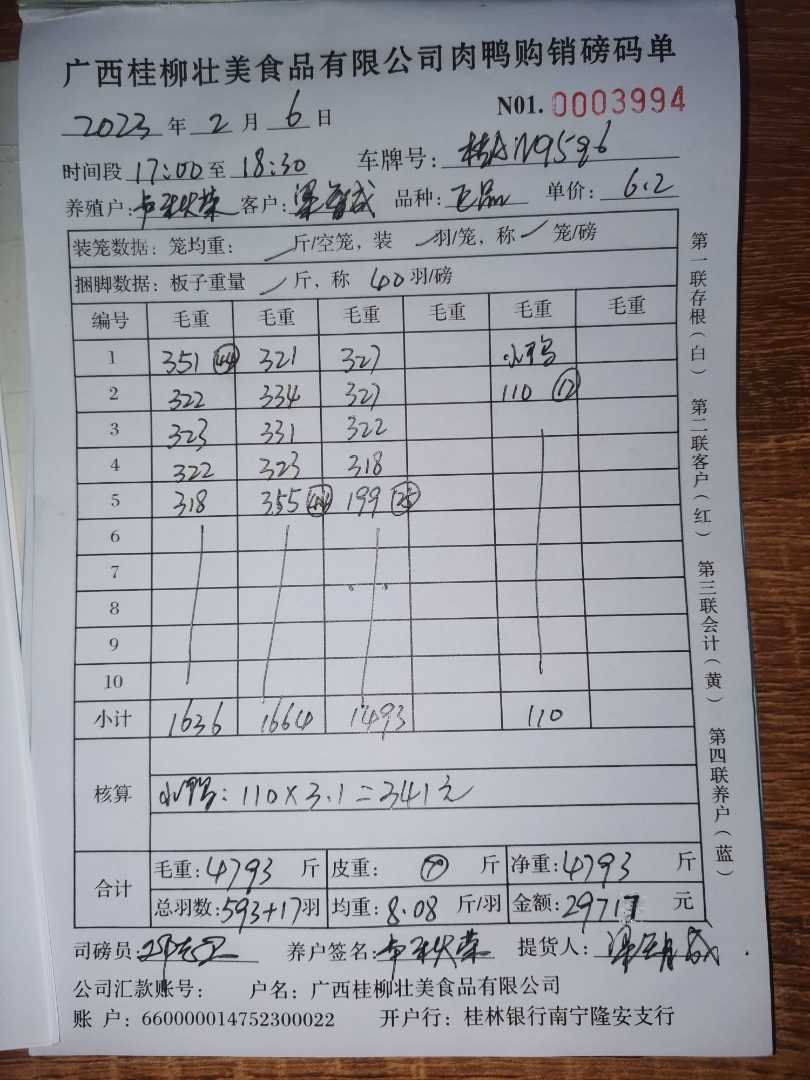 广西桂柳壮美食品有限公司肉鸭购销磅码单
2023 年 2 月 6 日 N01. 0003994
时间段 17:00 至 18:30 车牌号: 桂AN9596
养殖户: 客户: 品种: 正品 单价: 6.2
装笼数据: 笼均重: 斤/空笼, 装 羽/笼, 称 笼/磅
捆脚数据: 板子重量 斤, 称 40 羽/磅
编号 毛重 毛重 毛重 毛重 毛重 毛重
1 351 44 321 327 小鸭
2 322 334 327 110 12
3 323 331 322
4 322 323 318
5 318 355 44 199 25
6
7
8
9
10
小计 1636 1664 1493 110
核算 小鸭: 110×3.1=341元
合计 毛重: 4793 斤 皮重: 斤 净重: 4793 斤
总羽数: 593+17 羽 均重: 8.08 斤/羽 金额: 29717 元
司磅员: 养户签名: 提货人:
公司汇款账号: 户名: 广西桂柳壮美食品有限公司
账 户: 660000014752300022 开户行: 桂林银行南宁隆安支行
第一联存根(白) 第二联客户(红) 第三联会计(黄) 第四联养户(蓝)